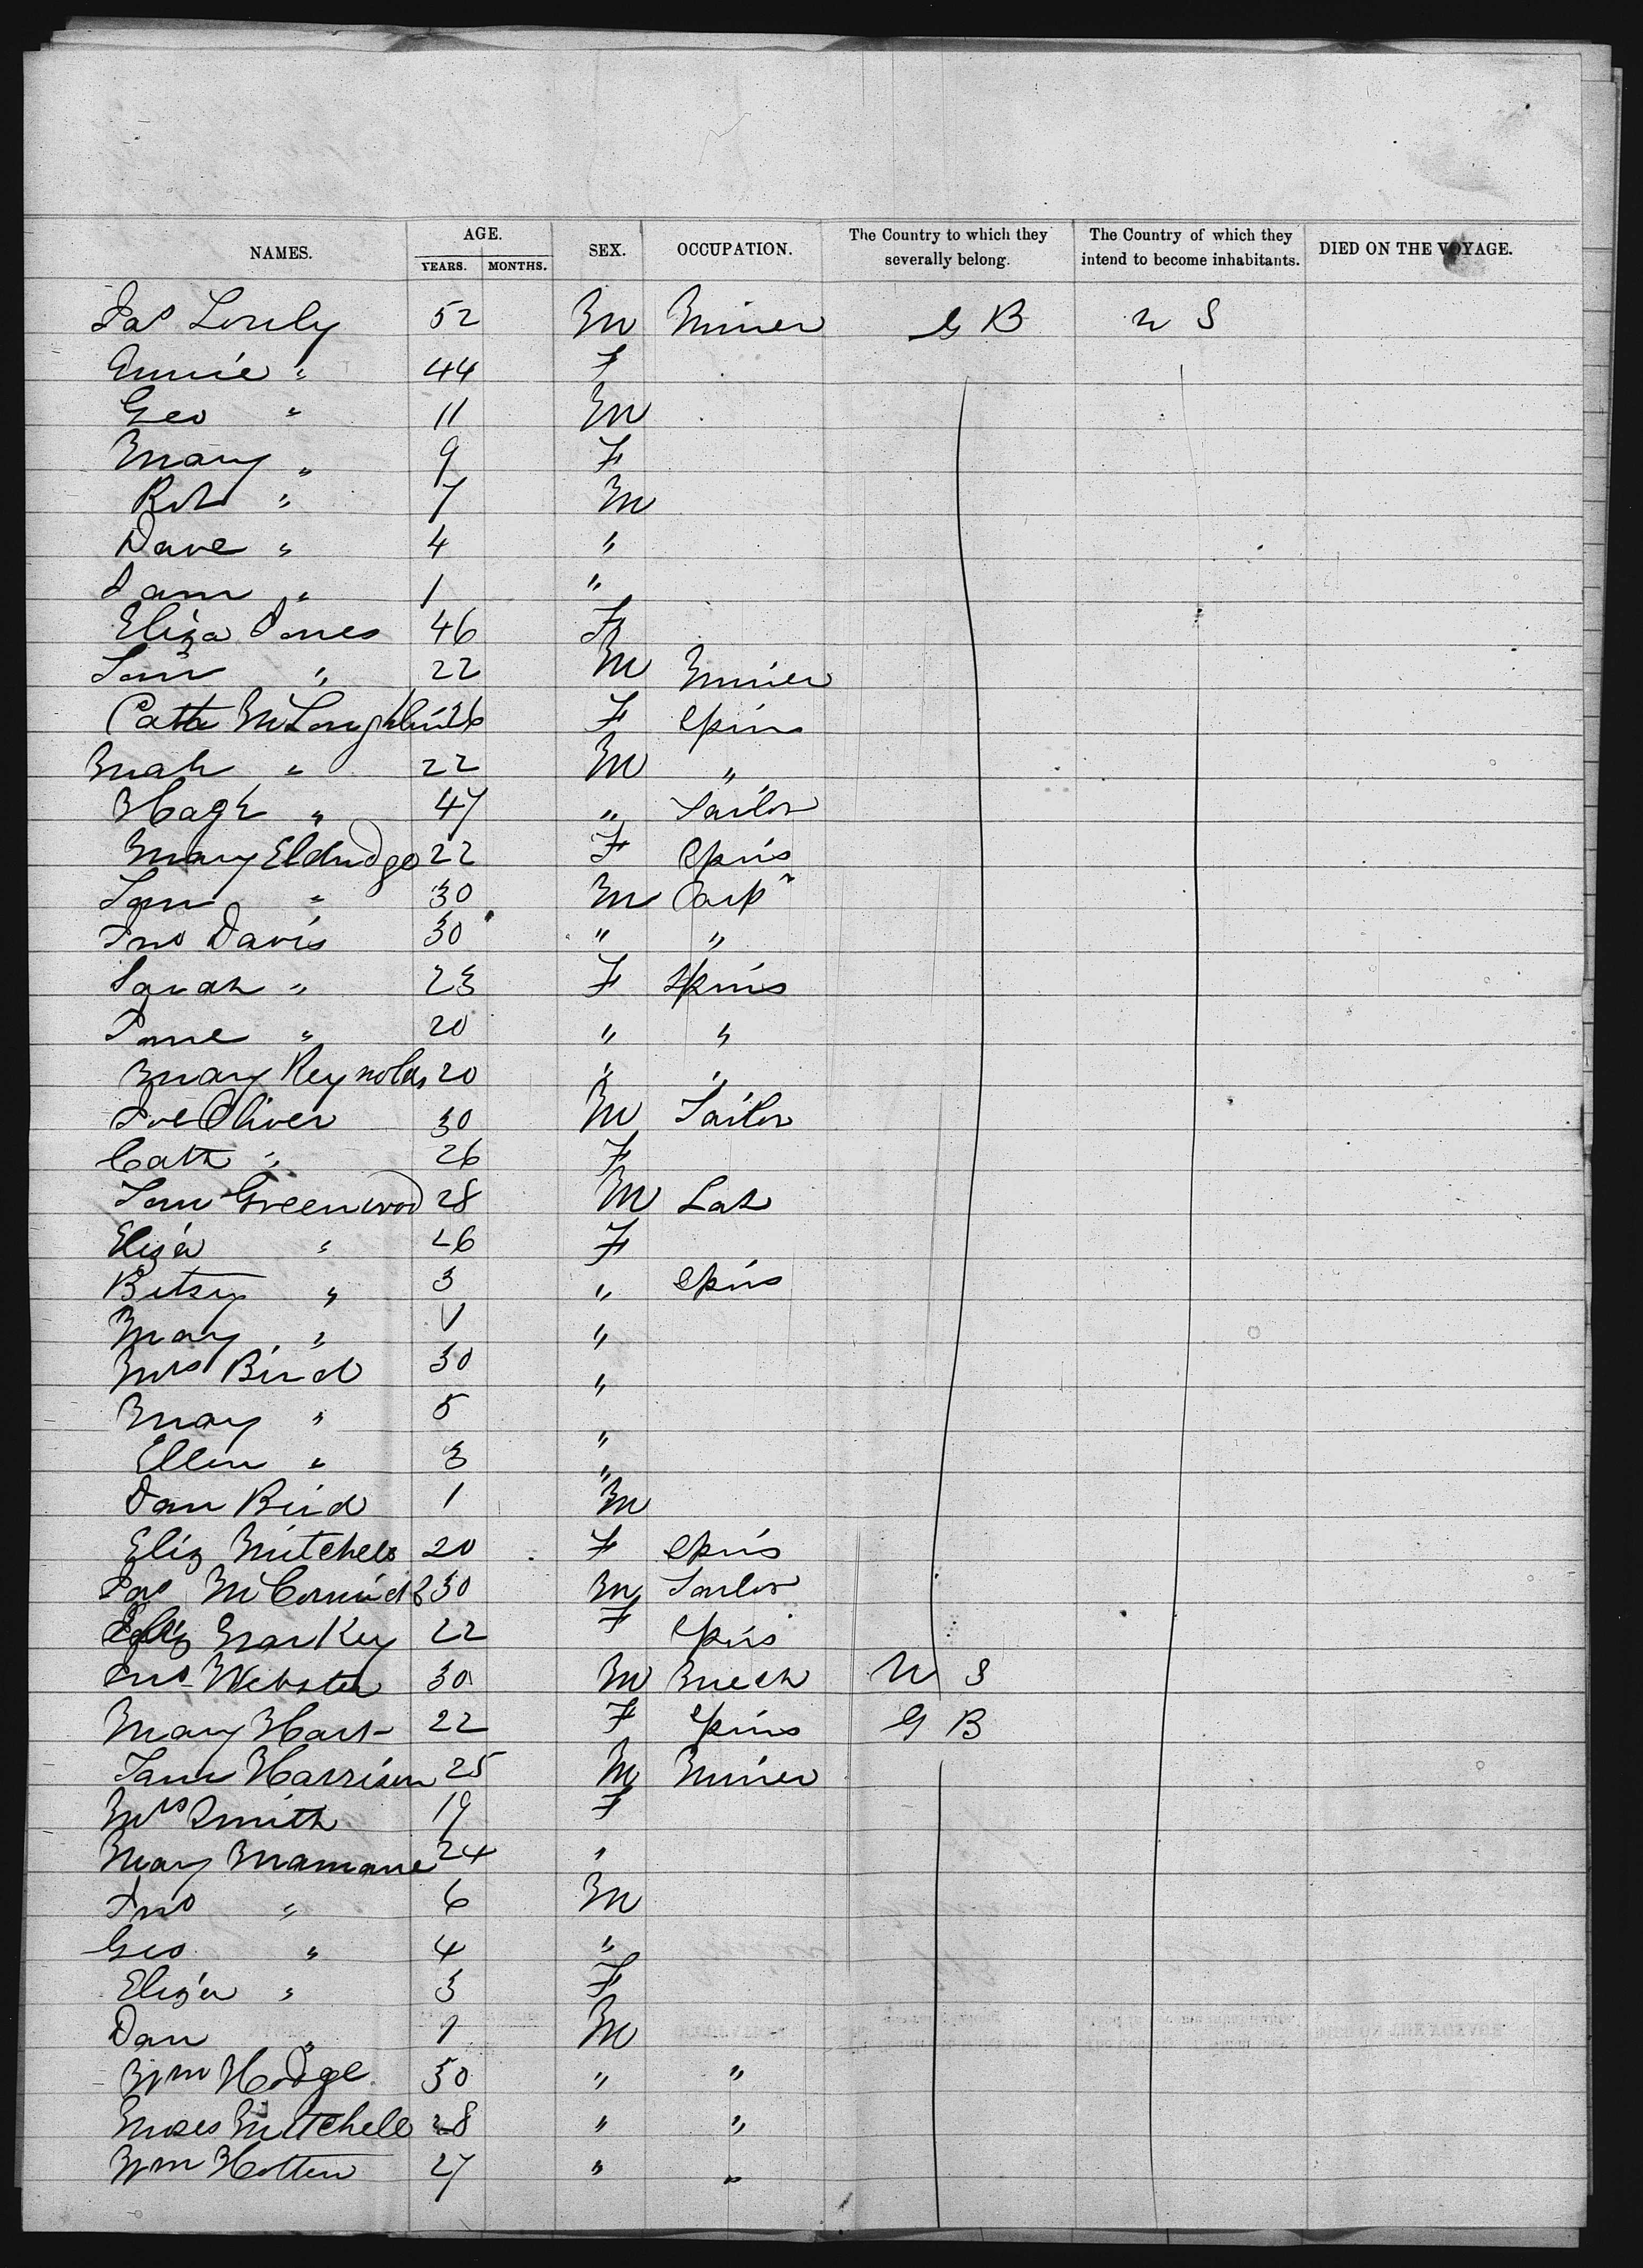 NAMES. AGE. SEX. OCCUPATION. The Country to which they severally belong. The Country of which they intend to become inhabitants. DIED ON THE VOYAGE.
YEARS. MONTHS.
Jas Lonely 52 M Miner G B U S
Annie " 44 F
Geo " 11 M
Mary " 9 F
Rob " 7 M
Dave " 4 "
Sam " 1 "
Eliza Jones 46 F
Sam " 22 M Miner
Cath McLoughlin 26 F Spins
" 22 M "
Hugh " 47 " Tailor
Mary Eldridge 22 F Spins
Sam " 30 M Carpr
Jno Davis 30 " "
Sarah " 23 F Spins
Jane " 20 " "
Mary Reynolds 20 " "
Joe Oliver 30 M Tailor
Cath " 26 F
Sam Greenwood 28 M Lab
Eliza " 26 F
Betsy " 3 " Spins
Mary " 1 "
Mrs Bird 30 "
Mary " 5 "
Ellen " 3 "
Dan Bird 1 M
Eliz Mitchell 20 F Spins
Jas McCormick 30 M Tailor
Eliz Markey 22 F Spins
Jno Webster 30 M Mech U S
Mary Hart 22 F Spins G B
Sam Harrison 25 M Miner
Mrs Smith 19 F
Mary Mamane 24 "
Jno " 6 M
Geo " 4 "
Eliza " 3 F
Dan " 1 M
Wm Hodge 50 " "
Moses Mitchell 28 " "
Wm Hotten 27 " "